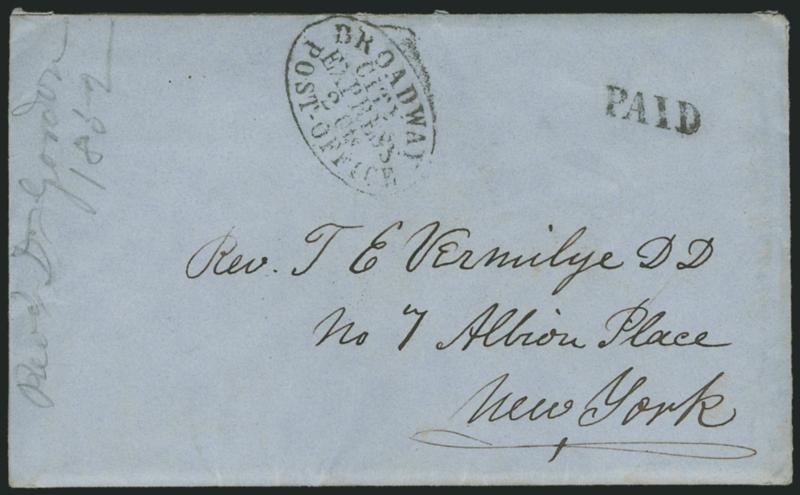 BROADWAY
CITY
EXPRESS
2 Cts
POST-OFFICE
PAID
Rev. T E Vermilye DD
No 7 Albion Place
New York
Rev d Dr Gordon
1852